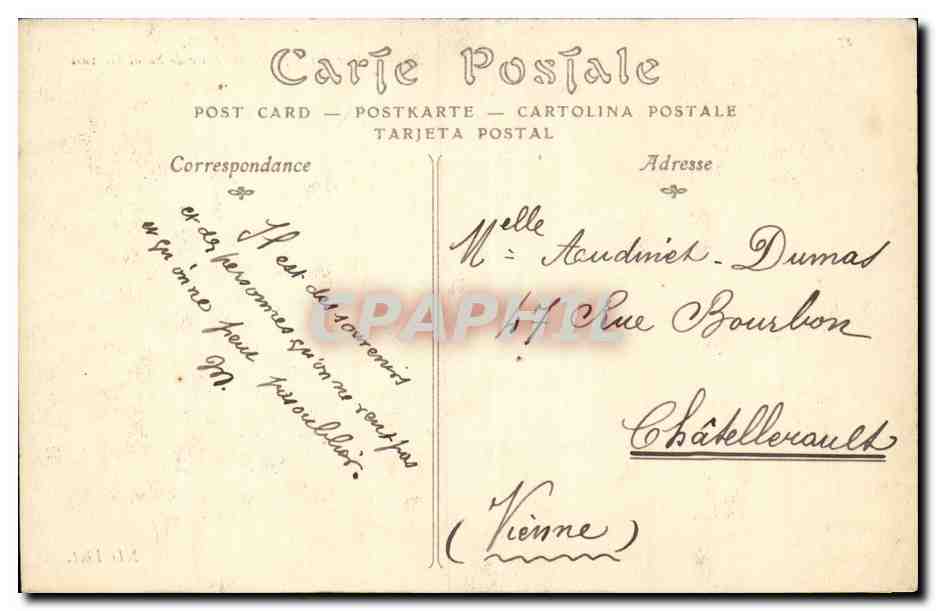 Carte Postale
POST CARD — POSTKARTE — CARTOLINA POSTALE
TARJETA POSTAL
Correspondance
Il est des souvenirs
et des personnes qu'on ne veut pas
et qu'on ne peut pas oublier.
M.
Adresse
Melle Audinet - Dumas
47 Rue Bourbon
Châtellerault
(Vienne)
CPAPHIL